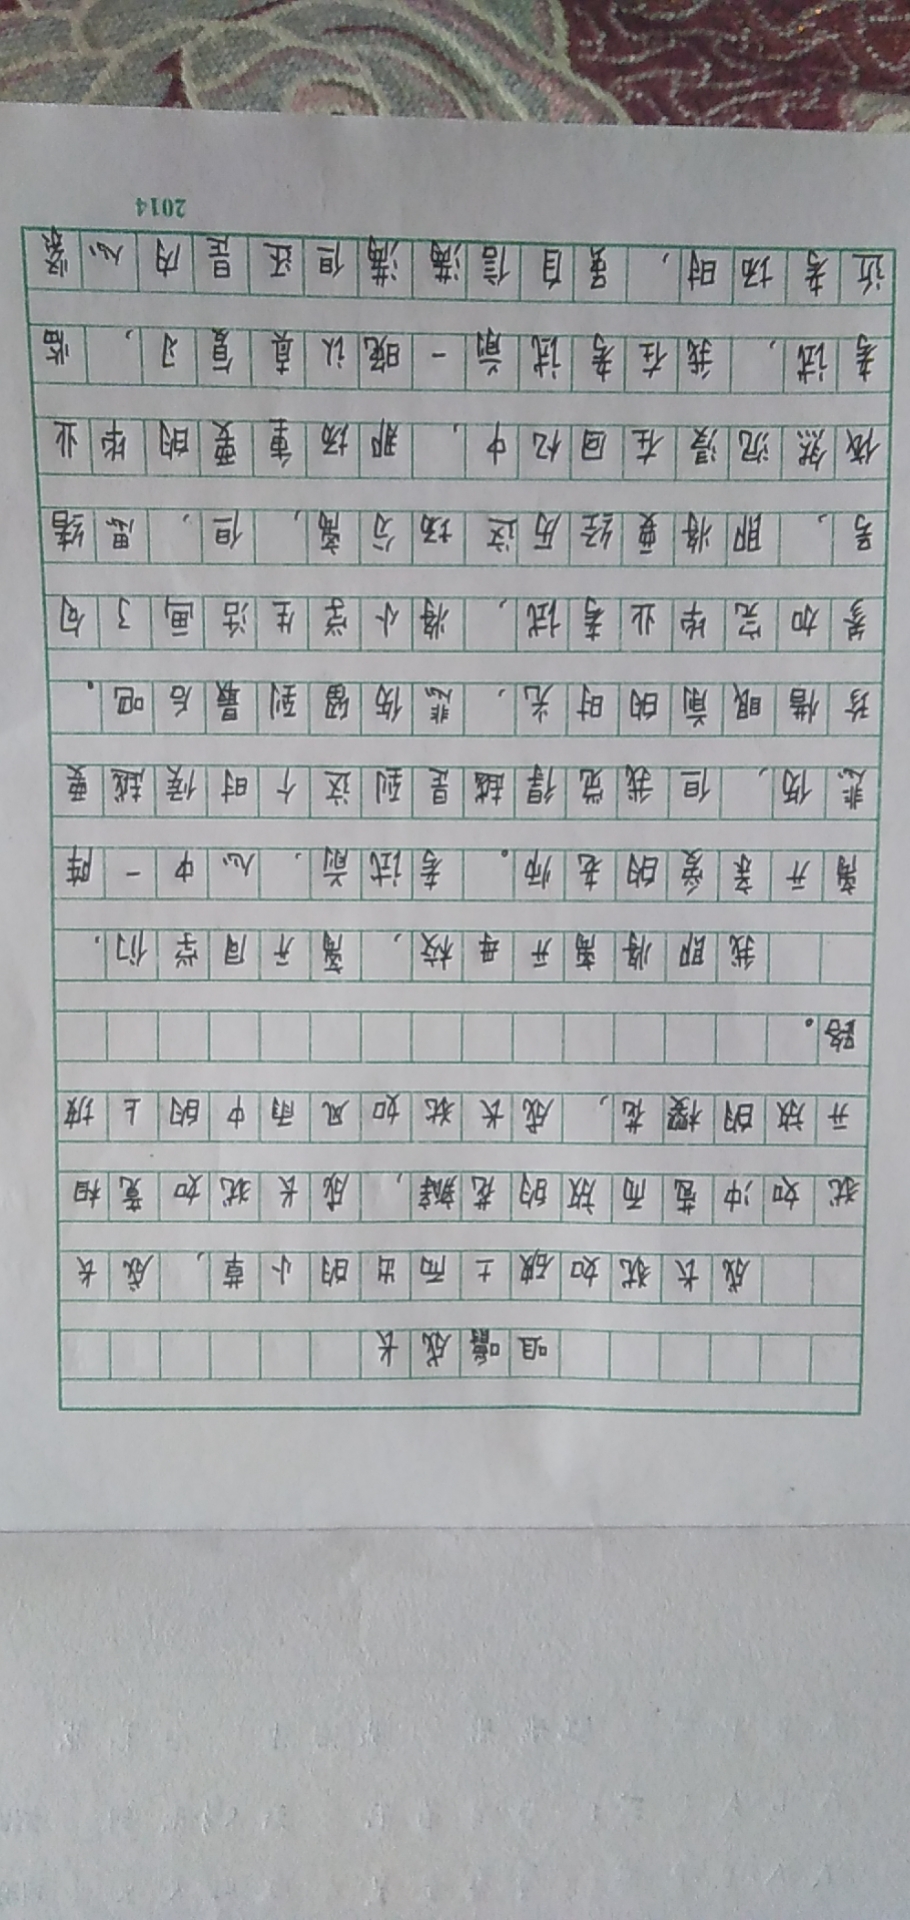 咀嚼成长
成长犹如破土而出的小草，成长
犹如冲苞而放的花瓣，成长犹如竞相
开放的樱花，成长犹如风雨中的上坡
路。
我即将离开母校，离开同学们，
离开亲爱的老师。考试前，心中一阵
悲伤，但我觉得越是到这个时候越要
珍惜眼前的时光，悲伤留到最后吧。
参加完毕业考试，将小学生活画了句
号，即将要经历这场分离，但，思绪
依然沉浸在回忆中，那场重要的毕业
考试，我在考试前一晚认真复习，临
近考场时，虽自信满满但还是内心紧
2014